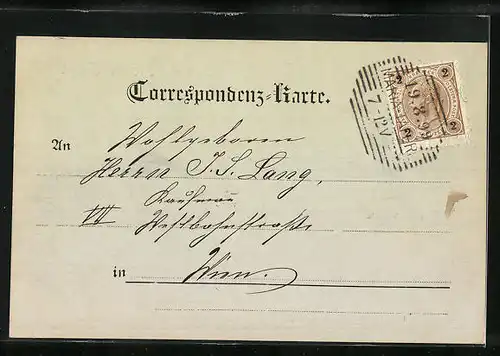 Correspondenz-Karte.
2 2
19.8.99
7-12V
2 2
An Wohlgeboren
Herrn J. S. Lang,
Kaufmann
VII Westbahnstraße
in Wien.